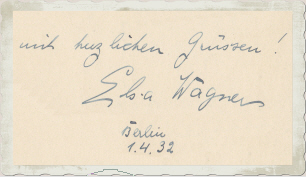 mit herzlichen Grüssen!
Elsa Wagner
Berlin
1.4.32